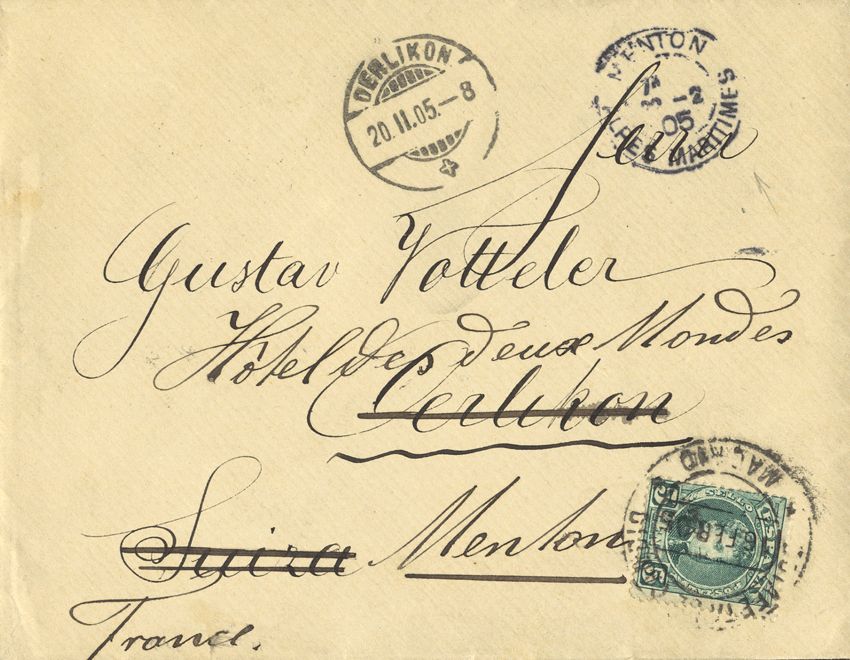 OERLIKON
20.II.05.–8
MENTON
-2
05
ALPES MARITIMES
Herrn
Gustav Votteler
Hôtel des deux Mondes
Oerlikon
Suiza Menton
France.
MADRID
FEB
5
5